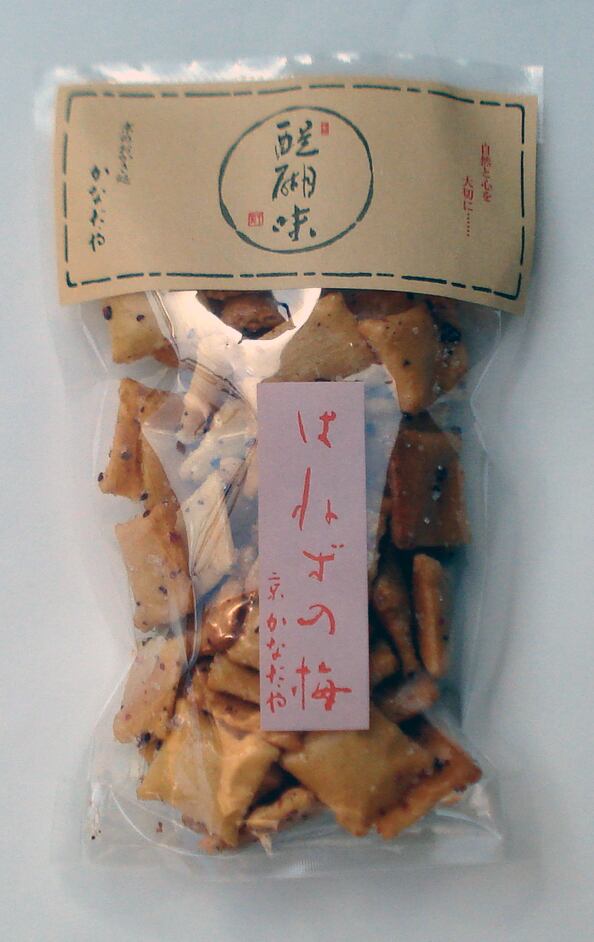 自然と心を
大切に……
醍醐味
かなだや
はねずの梅
京かなだや